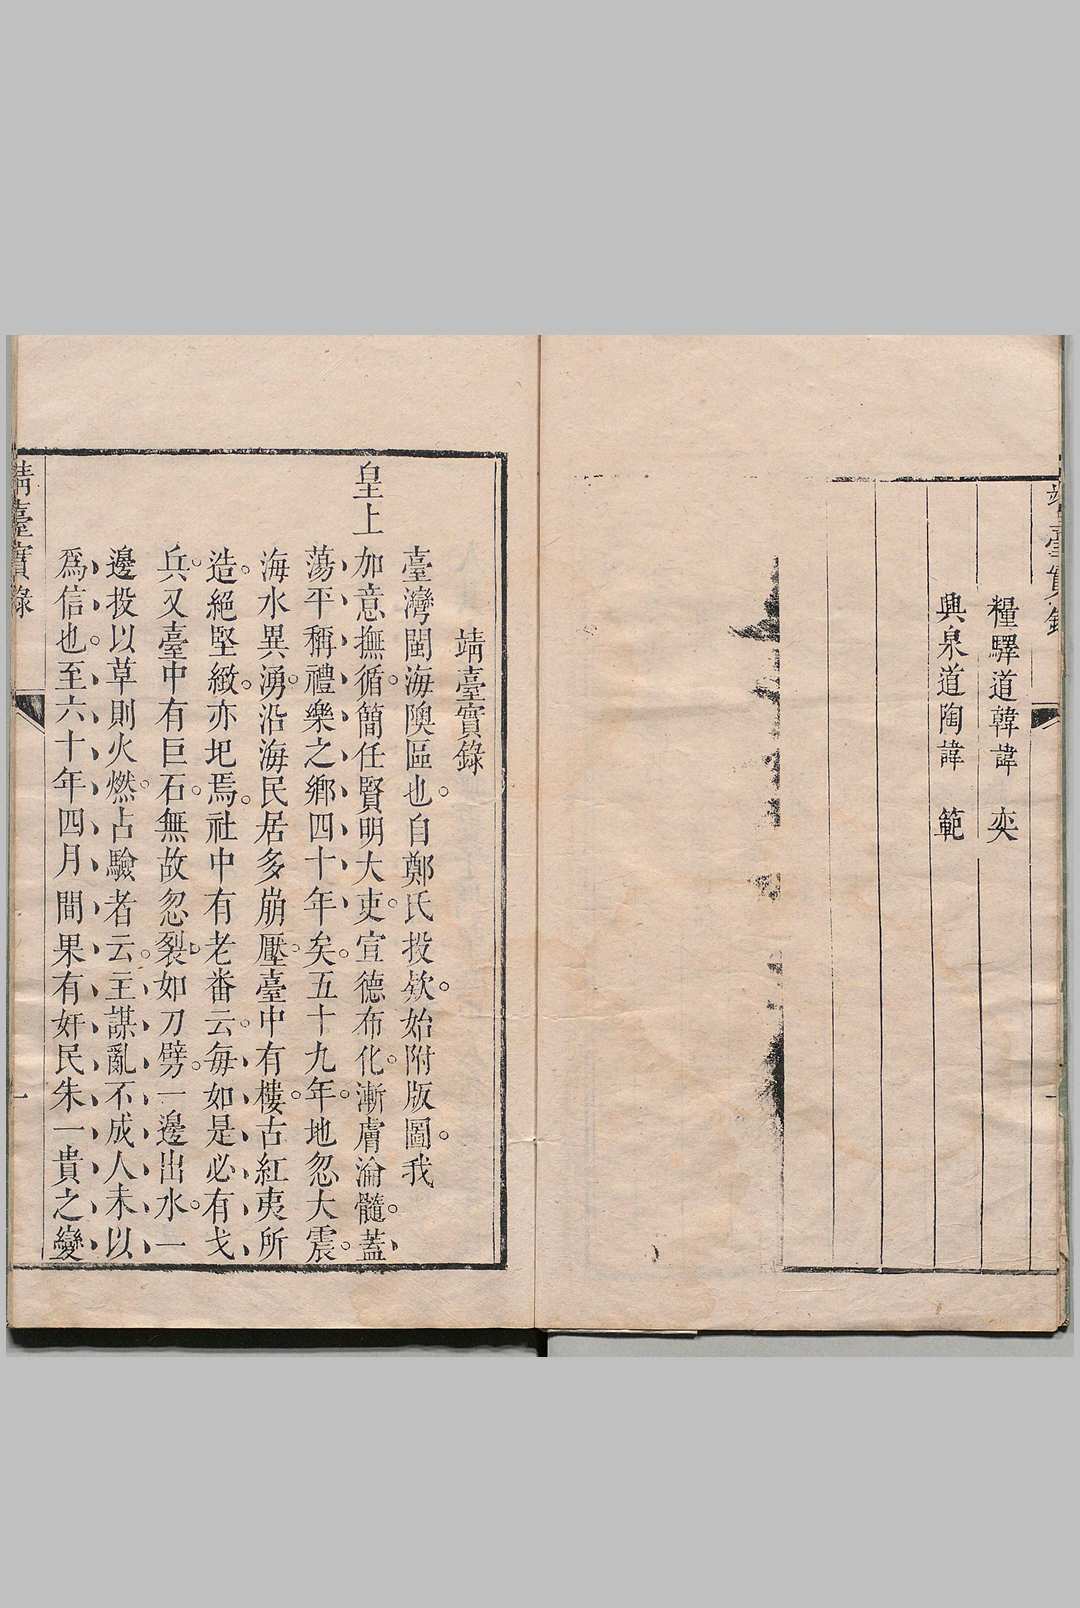 靖臺實錄
糧驛道韓諱 奕
興泉道陶諱 範
靖臺實錄
臺灣閩海隩區也自鄭氏投欵始附版圖我
皇上加意撫循簡任賢明大吏宣德布化漸膚淪髓蓋
蕩平稱禮樂之鄉四十年矣五十九年地忽大震
海水異湧沿海民居多崩壓臺中有樓古紅夷所
造絕堅緻亦圯焉社中有老番云每如是必有戈
兵又臺中有巨石無故忽裂如刀劈一邊出水一
邊投以草則火燃占驗者云主謀亂不成人未以
爲信也至六十年四月間果有奸民朱一貴之變
靖臺實錄
一